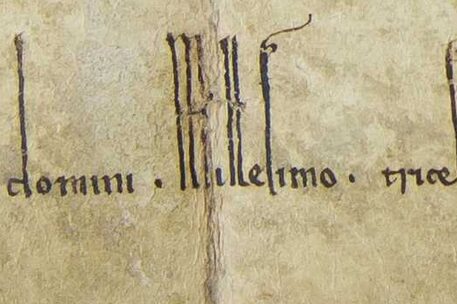 domini · Millesimo · trice